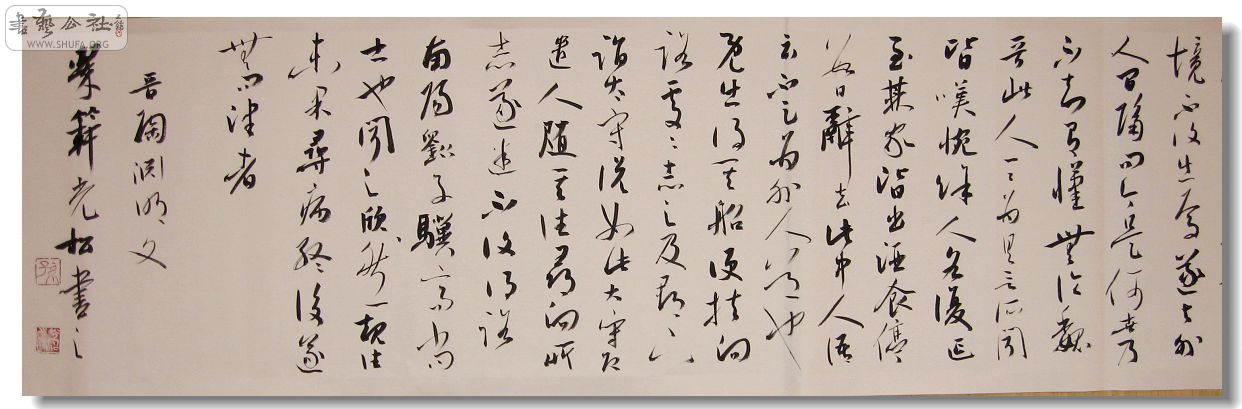 書藝公社
WWW.SHUFA.ORG
境不復出焉遂与外
人間隔問今是何世乃
不知有漢無論魏
晉此人一一為具言所聞
皆嘆惋餘人各復延
至其家皆出酒食停
數日辭去此中人語
云不足為外人道也
既出得其船便扶向
路處々志之及郡下
詣太守說如此太守即
遣人隨其往尋向所
志遂迷不復得路
南陽劉子驥高尚
士也聞之欣然規往
未果尋病終後遂
無問津者
晉陶淵明文
光松書之